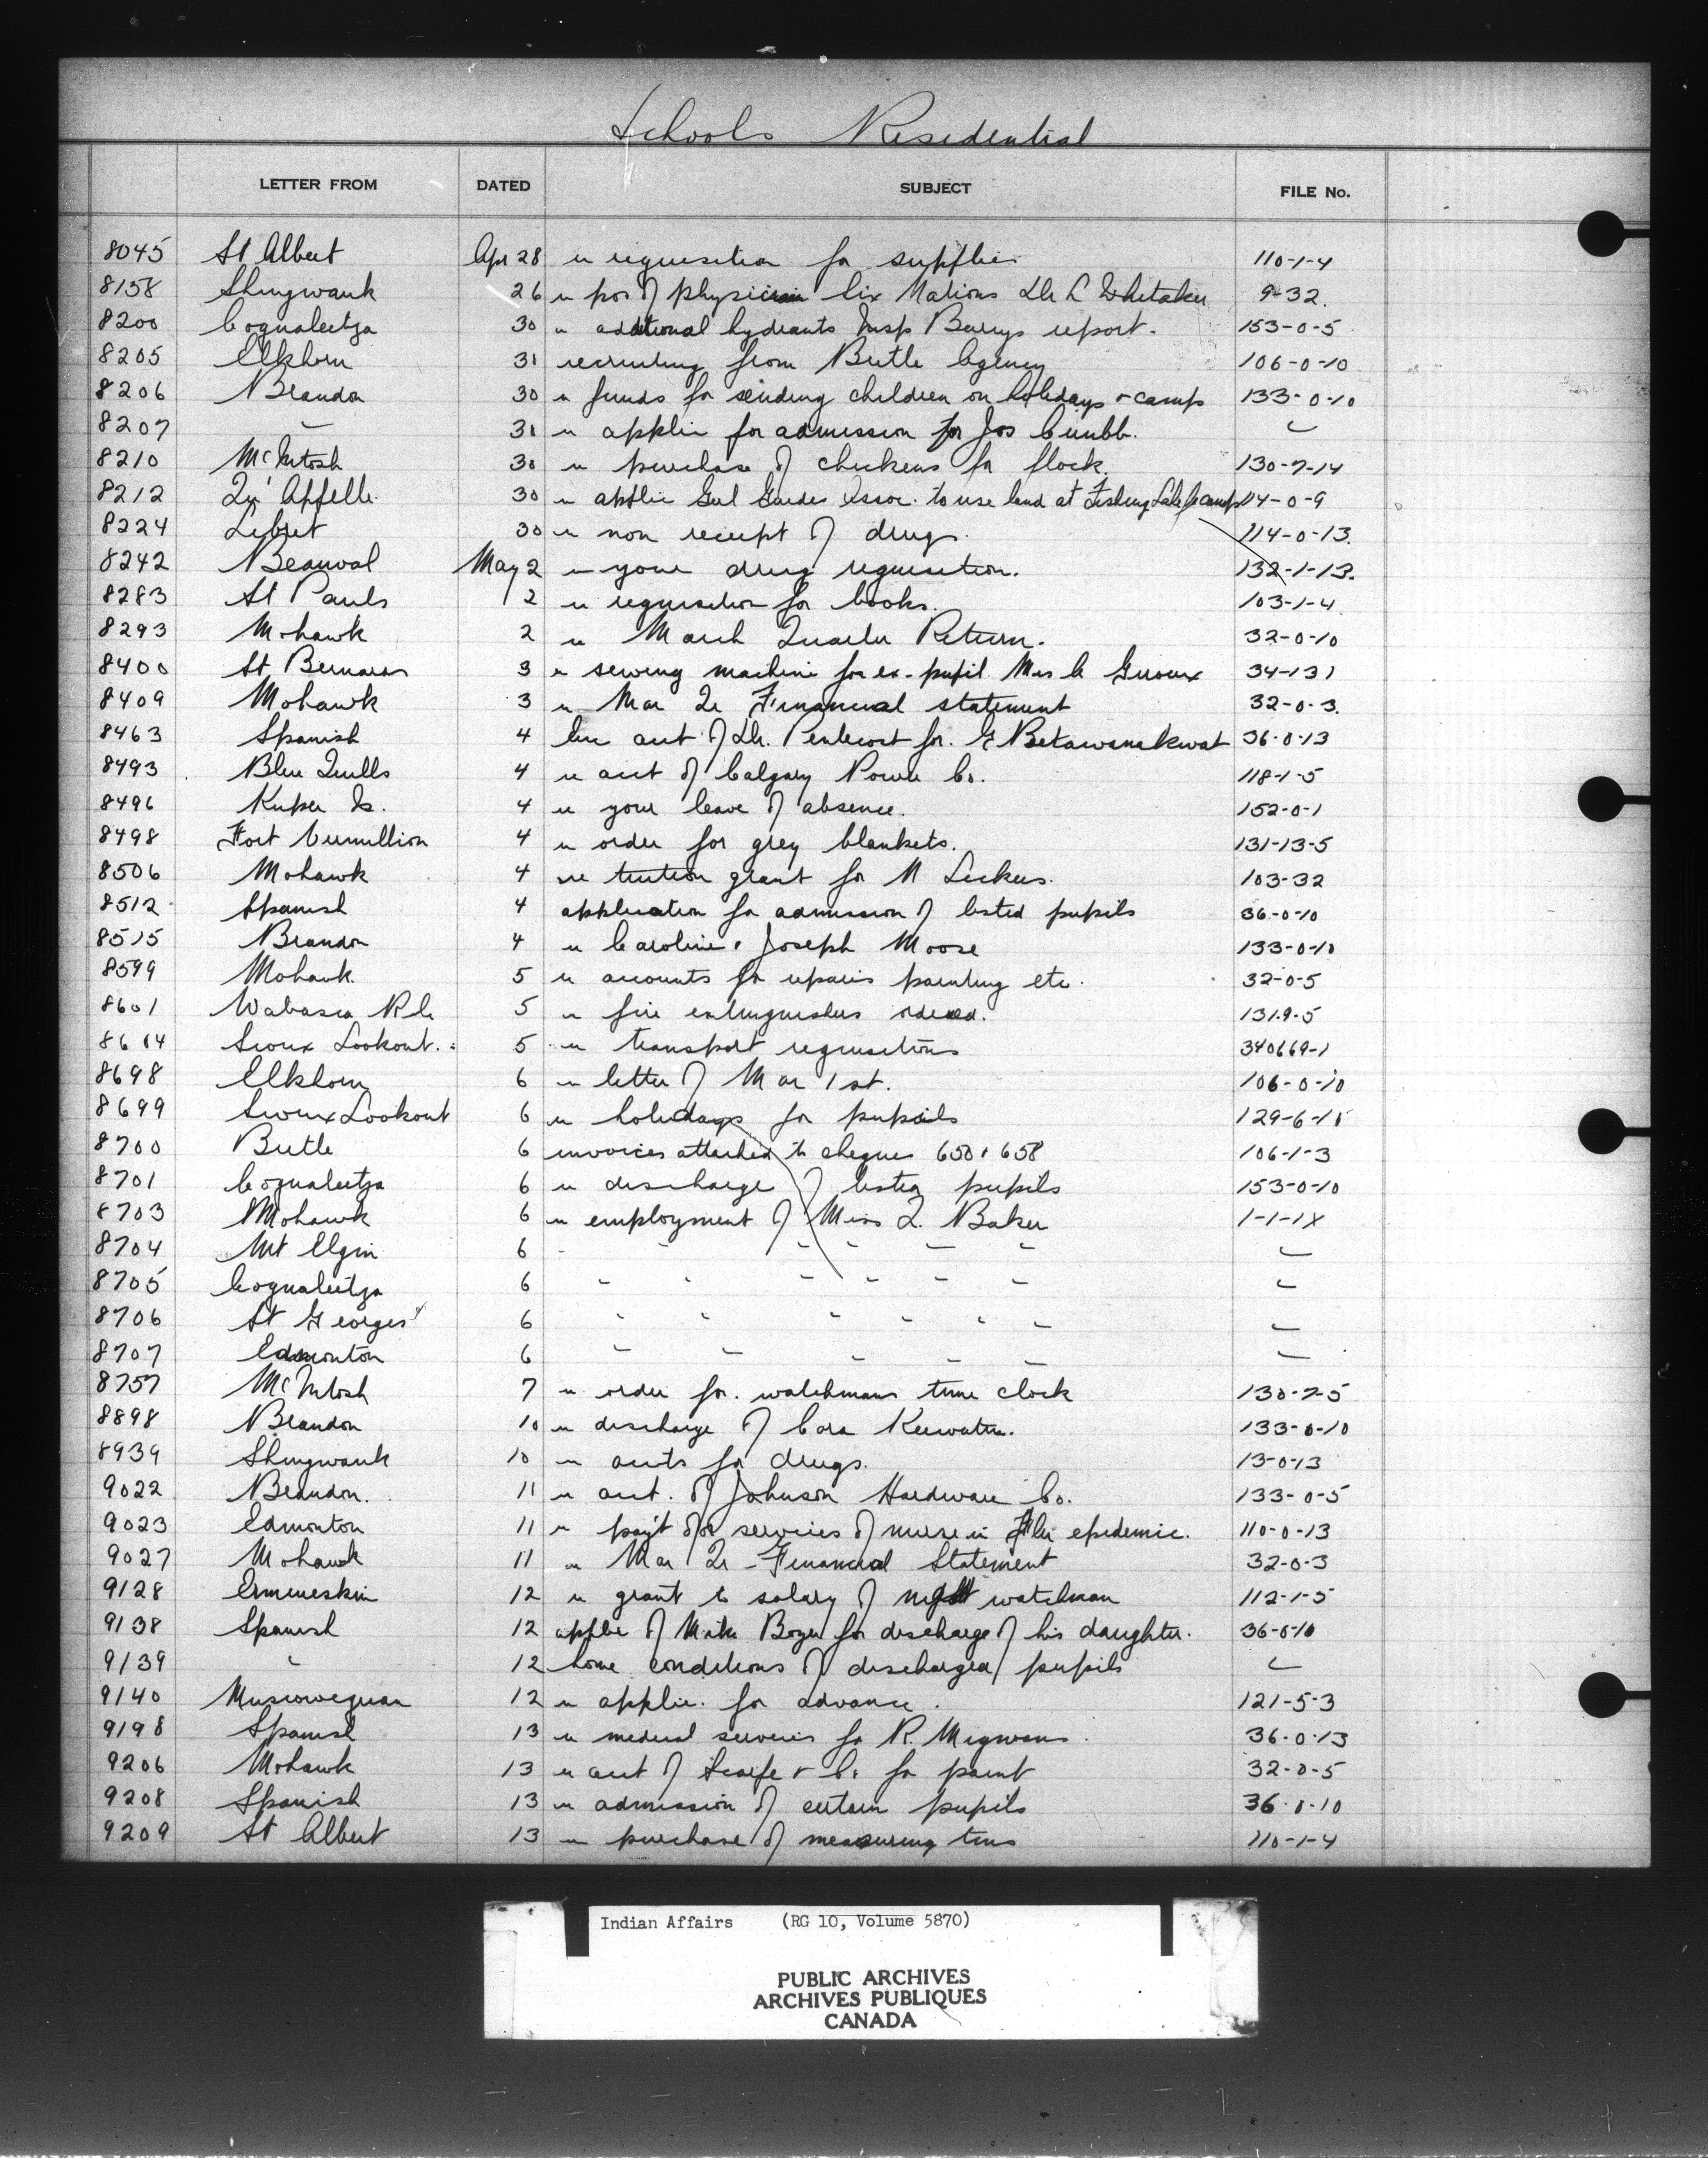 Schools Residential
LETTER FROM DATED SUBJECT FILE No.
8045 St Albert Apr 28 re requisition for supplies 110-1-4
8158 Shingwauk 26 re pos of physician Six Nations Dr L Whitaker 9-32.
8200 Coqualeetza 30 re additional hydrants Insp Barrys report. 153-0-5
8205 Elkhorn 31 recruiting from Birtle Agency 106-0-10
8206 Brandon 30 re funds for sending children on holidays & camps 133-0-10
8207 " 31 re applic for admission for Jos Cumbb. "
8210 McIntosh 30 re purchase of chickens for flock. 130-7-14
8212 Qu'Appelle 30 re applic Girl Guides Assoc. to use land at Fishing Lake for camp 114-0-9
8224 Lebret 30 re non receipt of drugs. 114-0-13.
8242 Beauval May 2 re your drug requisition. 132-1-13.
8283 St Pauls 2 re requisition for books. 103-1-4
8293 Mohawk 2 re March Quarter Return. 32-0-10
8400 St Bernards 3 re sewing machine for ex-pupil Mrs C Giroux 34-131
8409 Mohawk 3 re Mar Qr Financial statement 32-0-3.
8463 Spanish 4 acct of Dr. Pentecost for. E Betawanakwat 36-0-13
8493 Blue Quills 4 re acct of Calgary Power Co. 118-1-5
8496 Kuper Is. 4 re your leave of absence. 152-0-1
8498 Fort Vermillion 4 re order for grey blankets. 131-13-5
8506 Mohawk 4 re tuition grant for M Lickers. 103-32
8512 Spanish 4 application for admission of listed pupils 36-0-10
8515 Brandon 4 re Caroline & Joseph Moose 133-0-10
8599 Mohawk. 5 re accounts for repairs painting etc. 32-0-5
8601 Wabasca R.C. 5 re fire extinguishers ordered. 131-9-5
8614 Sioux Lookout. 5 re transport requisitions 340669-1
8698 Elkhorn 6 re letter of Mar 1st. 106-0-10
8699 Sioux Lookout 6 re holidays for pupils 129-6-10
8700 Birtle 6 invoices attached to cheques 650 & 658 106-1-3
8701 Coqualeetza 6 re discharge of listed pupils 153-0-10
8703 Mohawk 6 re employment of Miss L. Baker 1-1-1X
8704 Mt Elgin 6 " " " " " " "
8705 Coqualeetza 6 " " " " " " "
8706 St Georges 6 " " " " " " "
8707 Edmonton 6 " " " " " "
8757 McIntosh 7 re order for. watchmans time clock 130-7-5
8898 Brandon 10 re discharge of Cora Keewatin. 133-0-10
8939 Shingwauk 10 re accts for drugs. 13-0-13
9022 Brandon. 11 re acct. of Johnson Hardware Co. 133-0-5
9023 Edmonton 11 re pay't for services of nurse in Flu epidemic. 110-0-13
9027 Mohawk 11 re Mar Qr - Financial Statement 32-0-3
9128 Ermineskin 12 re grant to salary of night watchman 112-1-5
9138 Spanish 12 applic of Mike Boyer for discharge of his daughter. 36-0-10
9139 " 12 home conditions of discharged pupils "
9140 Muscowequan 12 re applic. for advance. 121-5-3
9198 Spanish 13 re medical services for R. Migwans. 36-0-13
9206 Mohawk 13 re acct of Scarfe & Co for paint 32-0-5
9208 Spanish 13 re admission of certain pupils 36-0-10
9209 St Albert 13 re purchase of measuring tins 110-1-4
Indian Affairs (RG 10, Volume 5870)
PUBLIC ARCHIVES
ARCHIVES PUBLIQUES
CANADA